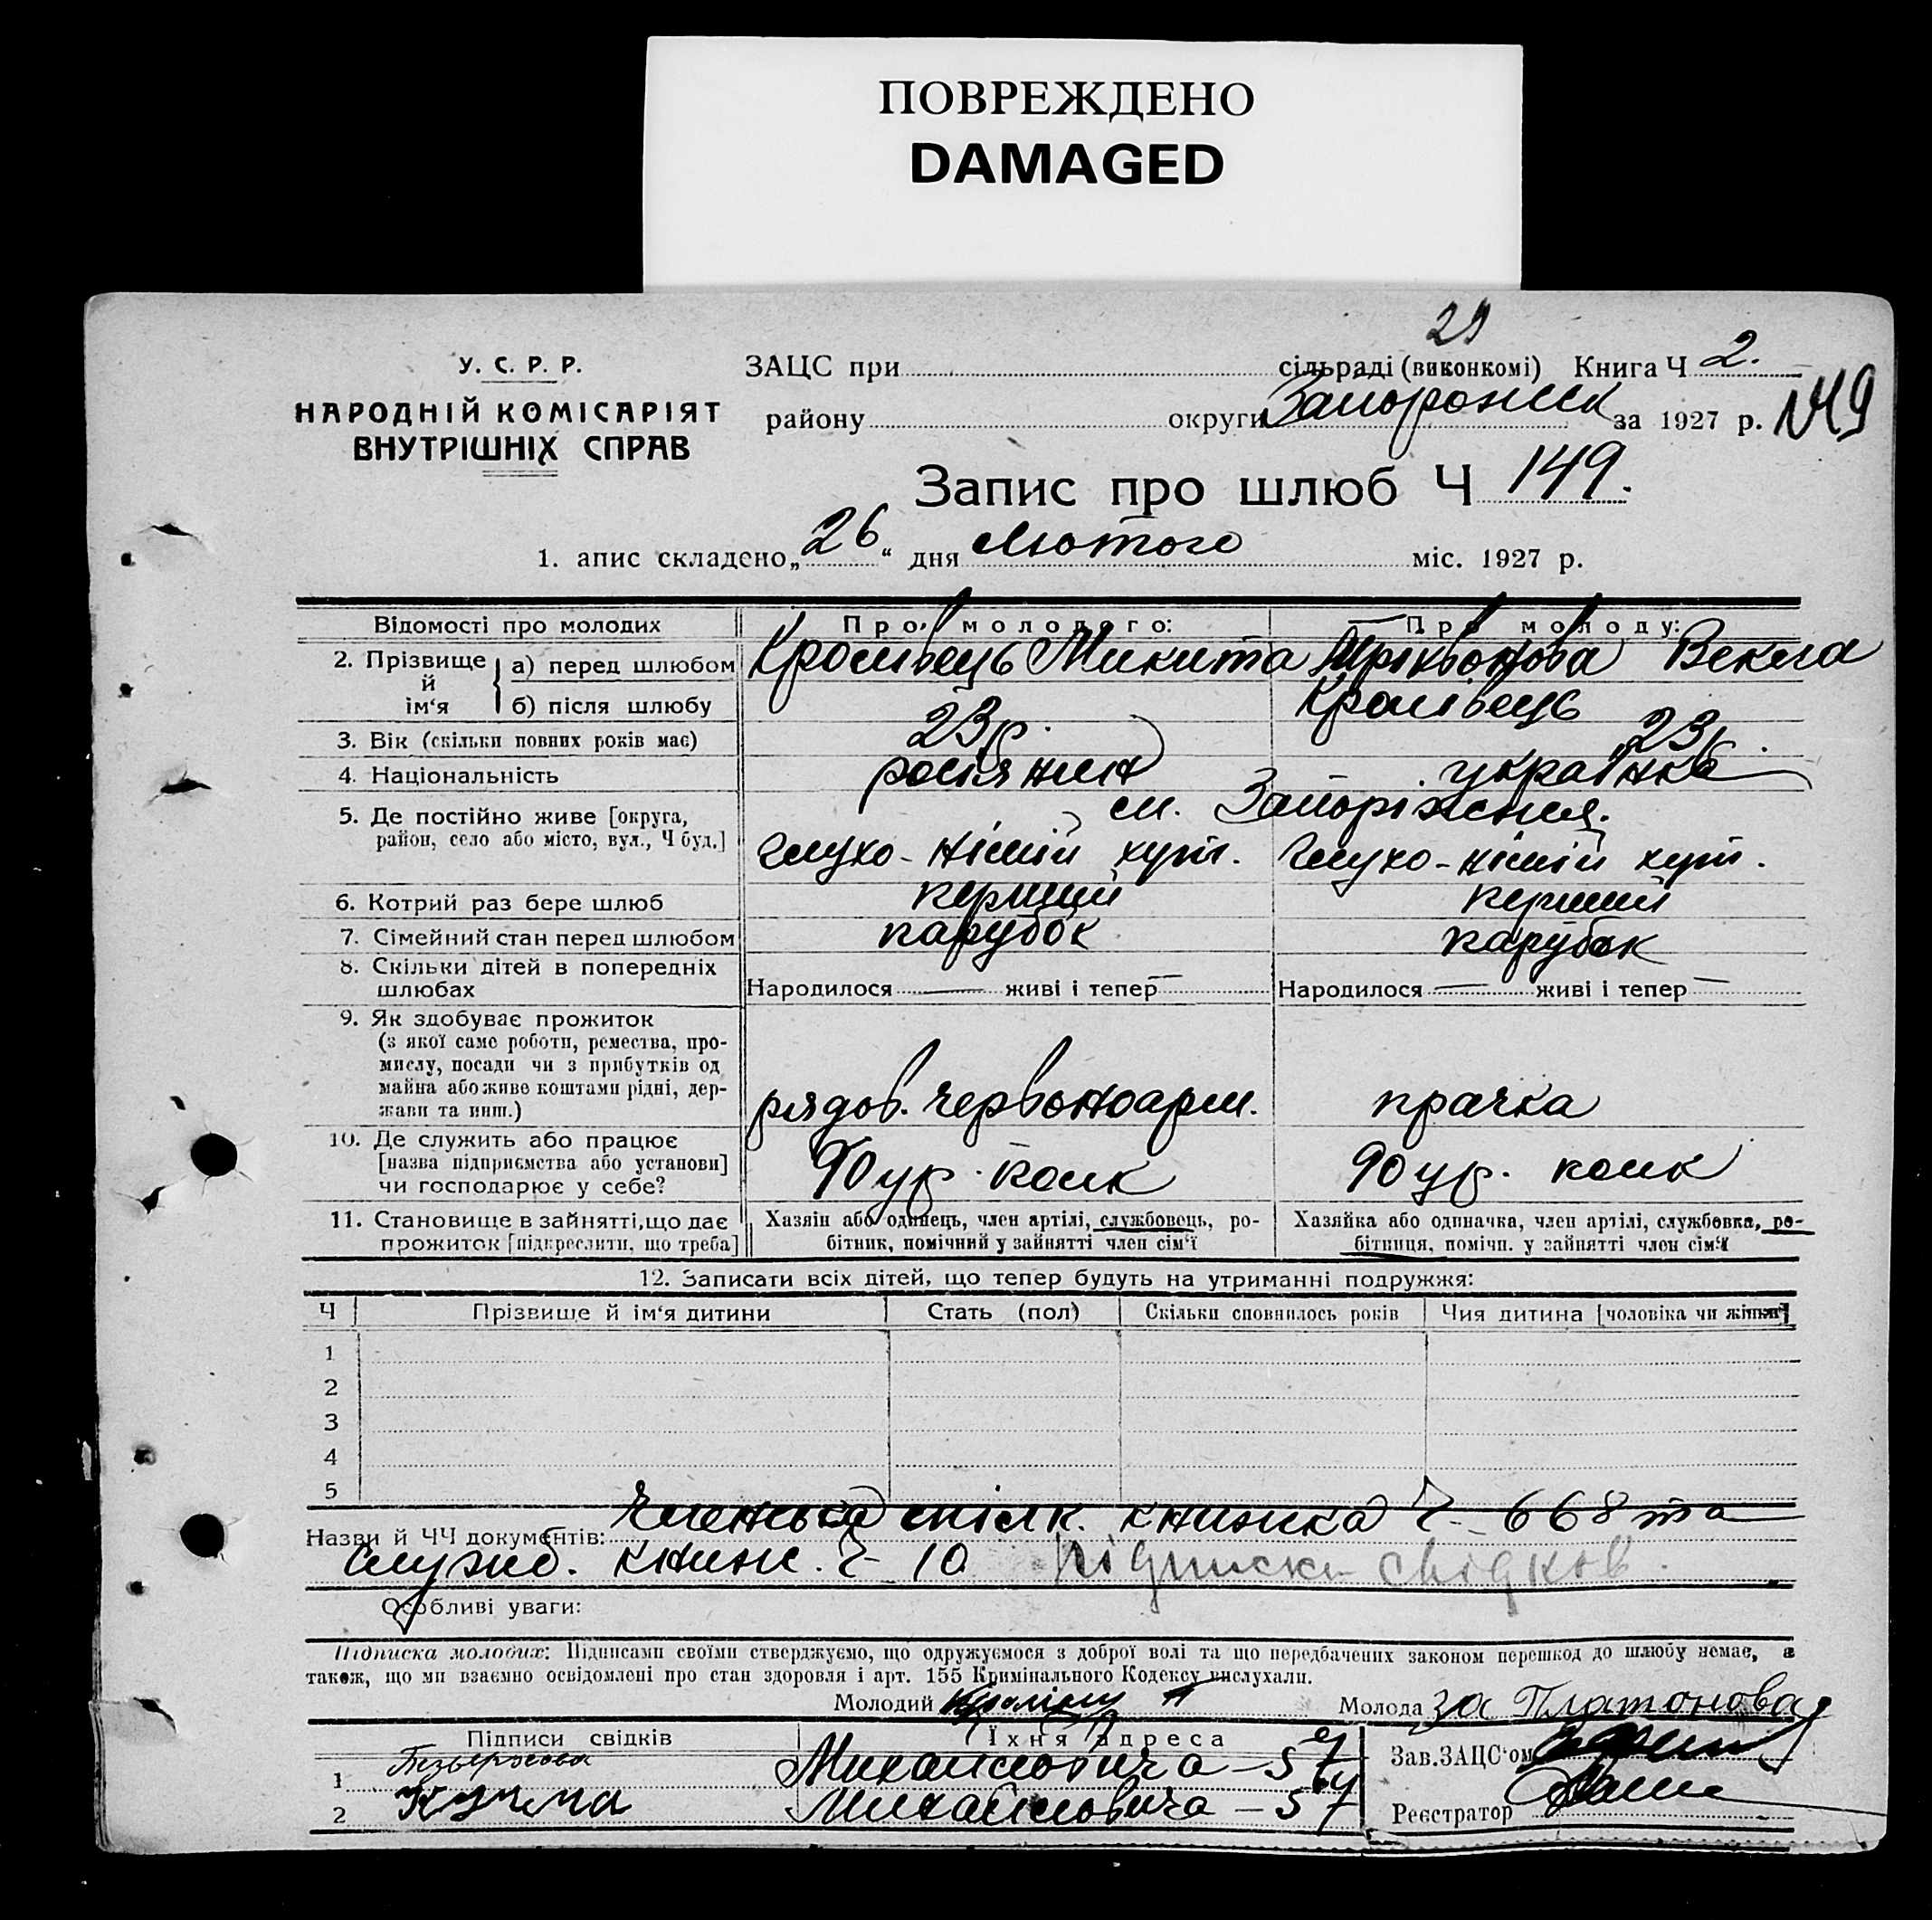 ПОВРЕЖДЕНО
DAMAGED
29
У. С. Р. Р.
НАРОДНІЙ КОМІСАРІЯТ
ВНУТРІШНІХ СПРАВ
ЗАЦС при сільраді (виконкомі) Книга Ч 2.
району округи Запорожск за 1927 р. 149
Запис про шлюб Ч 149.
1. апис складено „26“ дня Лютого міс. 1927 р.
Відомості про молодих Про молодого: Про молоду:
2. Прізвище й ім‘я
а) перед шлюбом Кролівець Микита Векла
б) після шлюбу Кролівець
3. Вік (скільки повних років має) 23 р. 23 р.
4. Національність росіянин українка
5. Де постійно живе [округа, м. Запоріжжя.
район, село або місто, вул., Ч буд.] Глухо-німій хут. Глухо-німій хут.
6. Котрий раз бере шлюб перший перший
7. Сімейний стан перед шлюбом парубок парубок
8. Скільки дітей в попередніх
шлюбах Народилося — живі і тепер — Народилося — живі і тепер —
9. Як здобуває прожиток
(з якої саме роботи, ремества, про-
мислу, посади чи з прибутків од
майна або живе коштами рідні, дер-
жави та инш.) рядов. червоноарм. прачка
10. Де служить або працює
[назва підприємства або установи] 90 ур. полк 90 ур. полк
чи господарює у себе?
11. Становище в зайнятті, що дає
прожиток [підкреслити, що треба]
Хазяїн або одинець, член артілі, службовець, ро-
бітник, помічний у зайнятті член сім‘ї
Хазяйка або одиначка, член артілі, службовка, ро-
бітниця, помічн. у зайнятті член сім‘ї
12. Записати всіх дітей, що тепер будуть на утриманні подружжя:
Ч Прізвище й ім‘я дитини Стать (пол) Скільки сповнилось років Чия дитина [чоловіка чи жінки]
1
2
3
4
5
Назви й ЧЧ документів: Членська спілк. книжка Ч 668 та
служб. книж. Ч 10 Підписки свідків.
Особливі уваги:
Підписка молодих: Підписами своїми стверджуємо, що одружуємося з доброї волі та що передбачених законом перешкод до шлюбу немає, а
також, що ми взаємно освідомлені про стан здоровля і арт. 155 Кримінального Кодексу вислухали.
Молодий Молода за Платонова
Підписи свідків Їхня адреса
1 Михайловича – 57 Зав. ЗАЦС‘ом
2 Кучма Михайловича – 57 Реєстратор